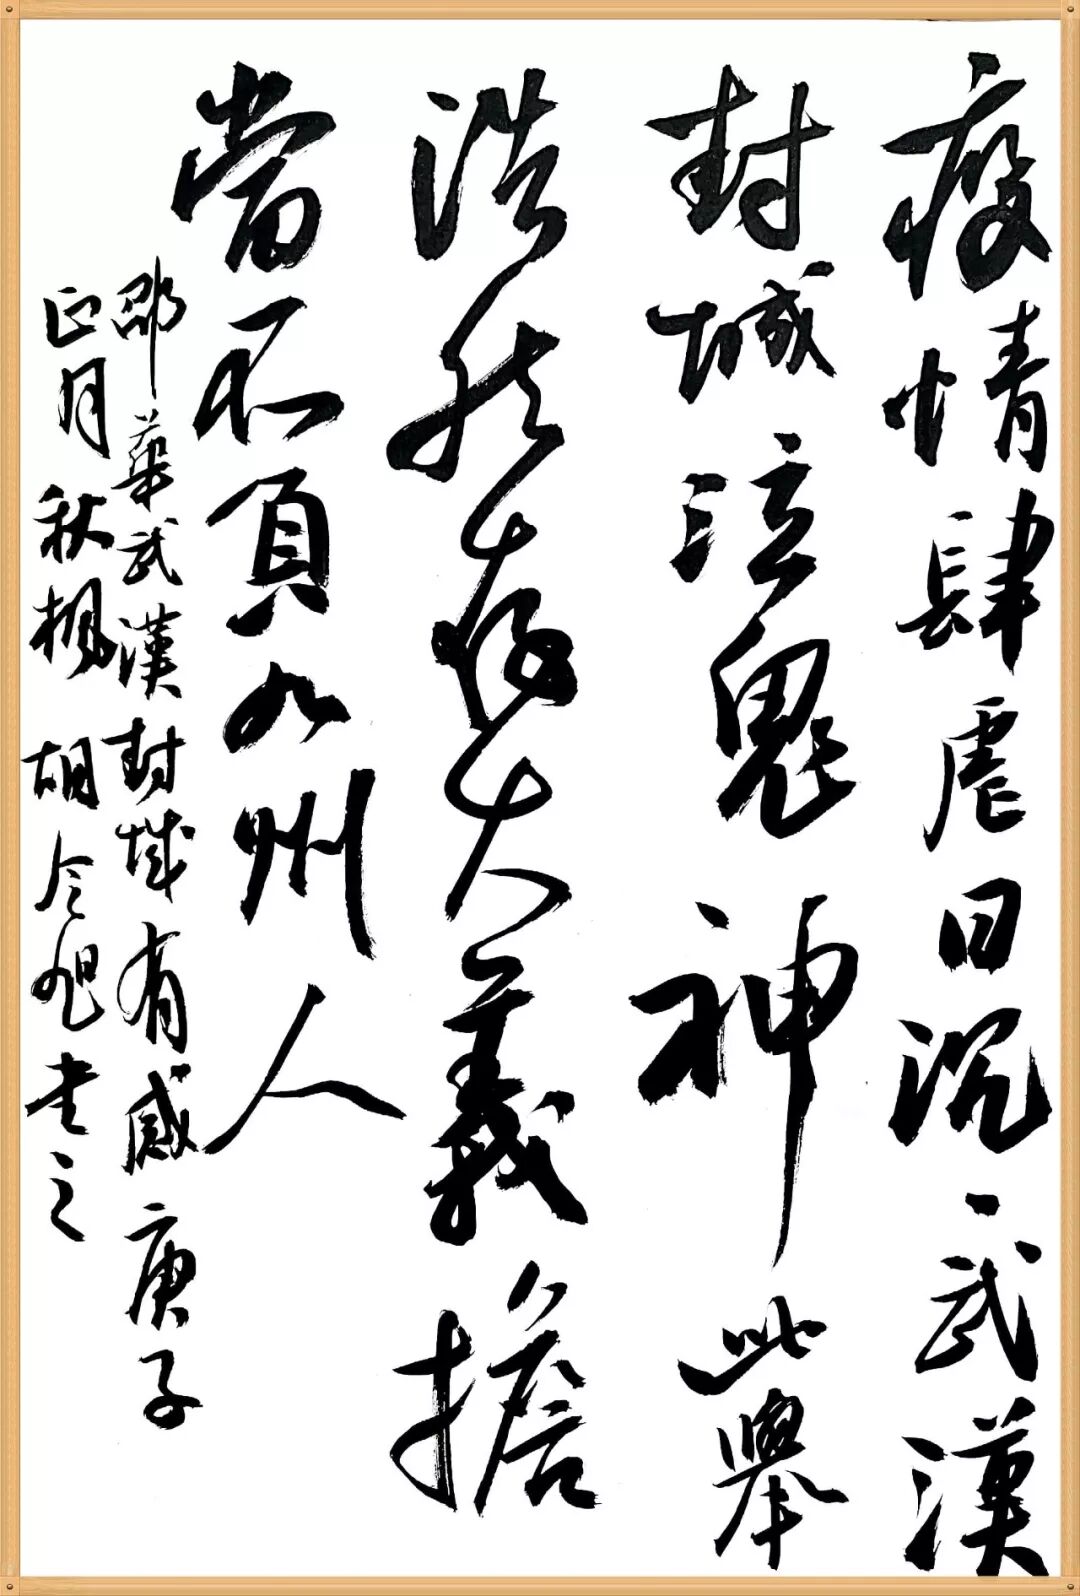 疫情肆虐日沉沉武漢
封城泣鬼神此舉
浩然存大義擔
當不負九州人
邵華武漢封城有感庚子
正月秋楓胡令旭書之